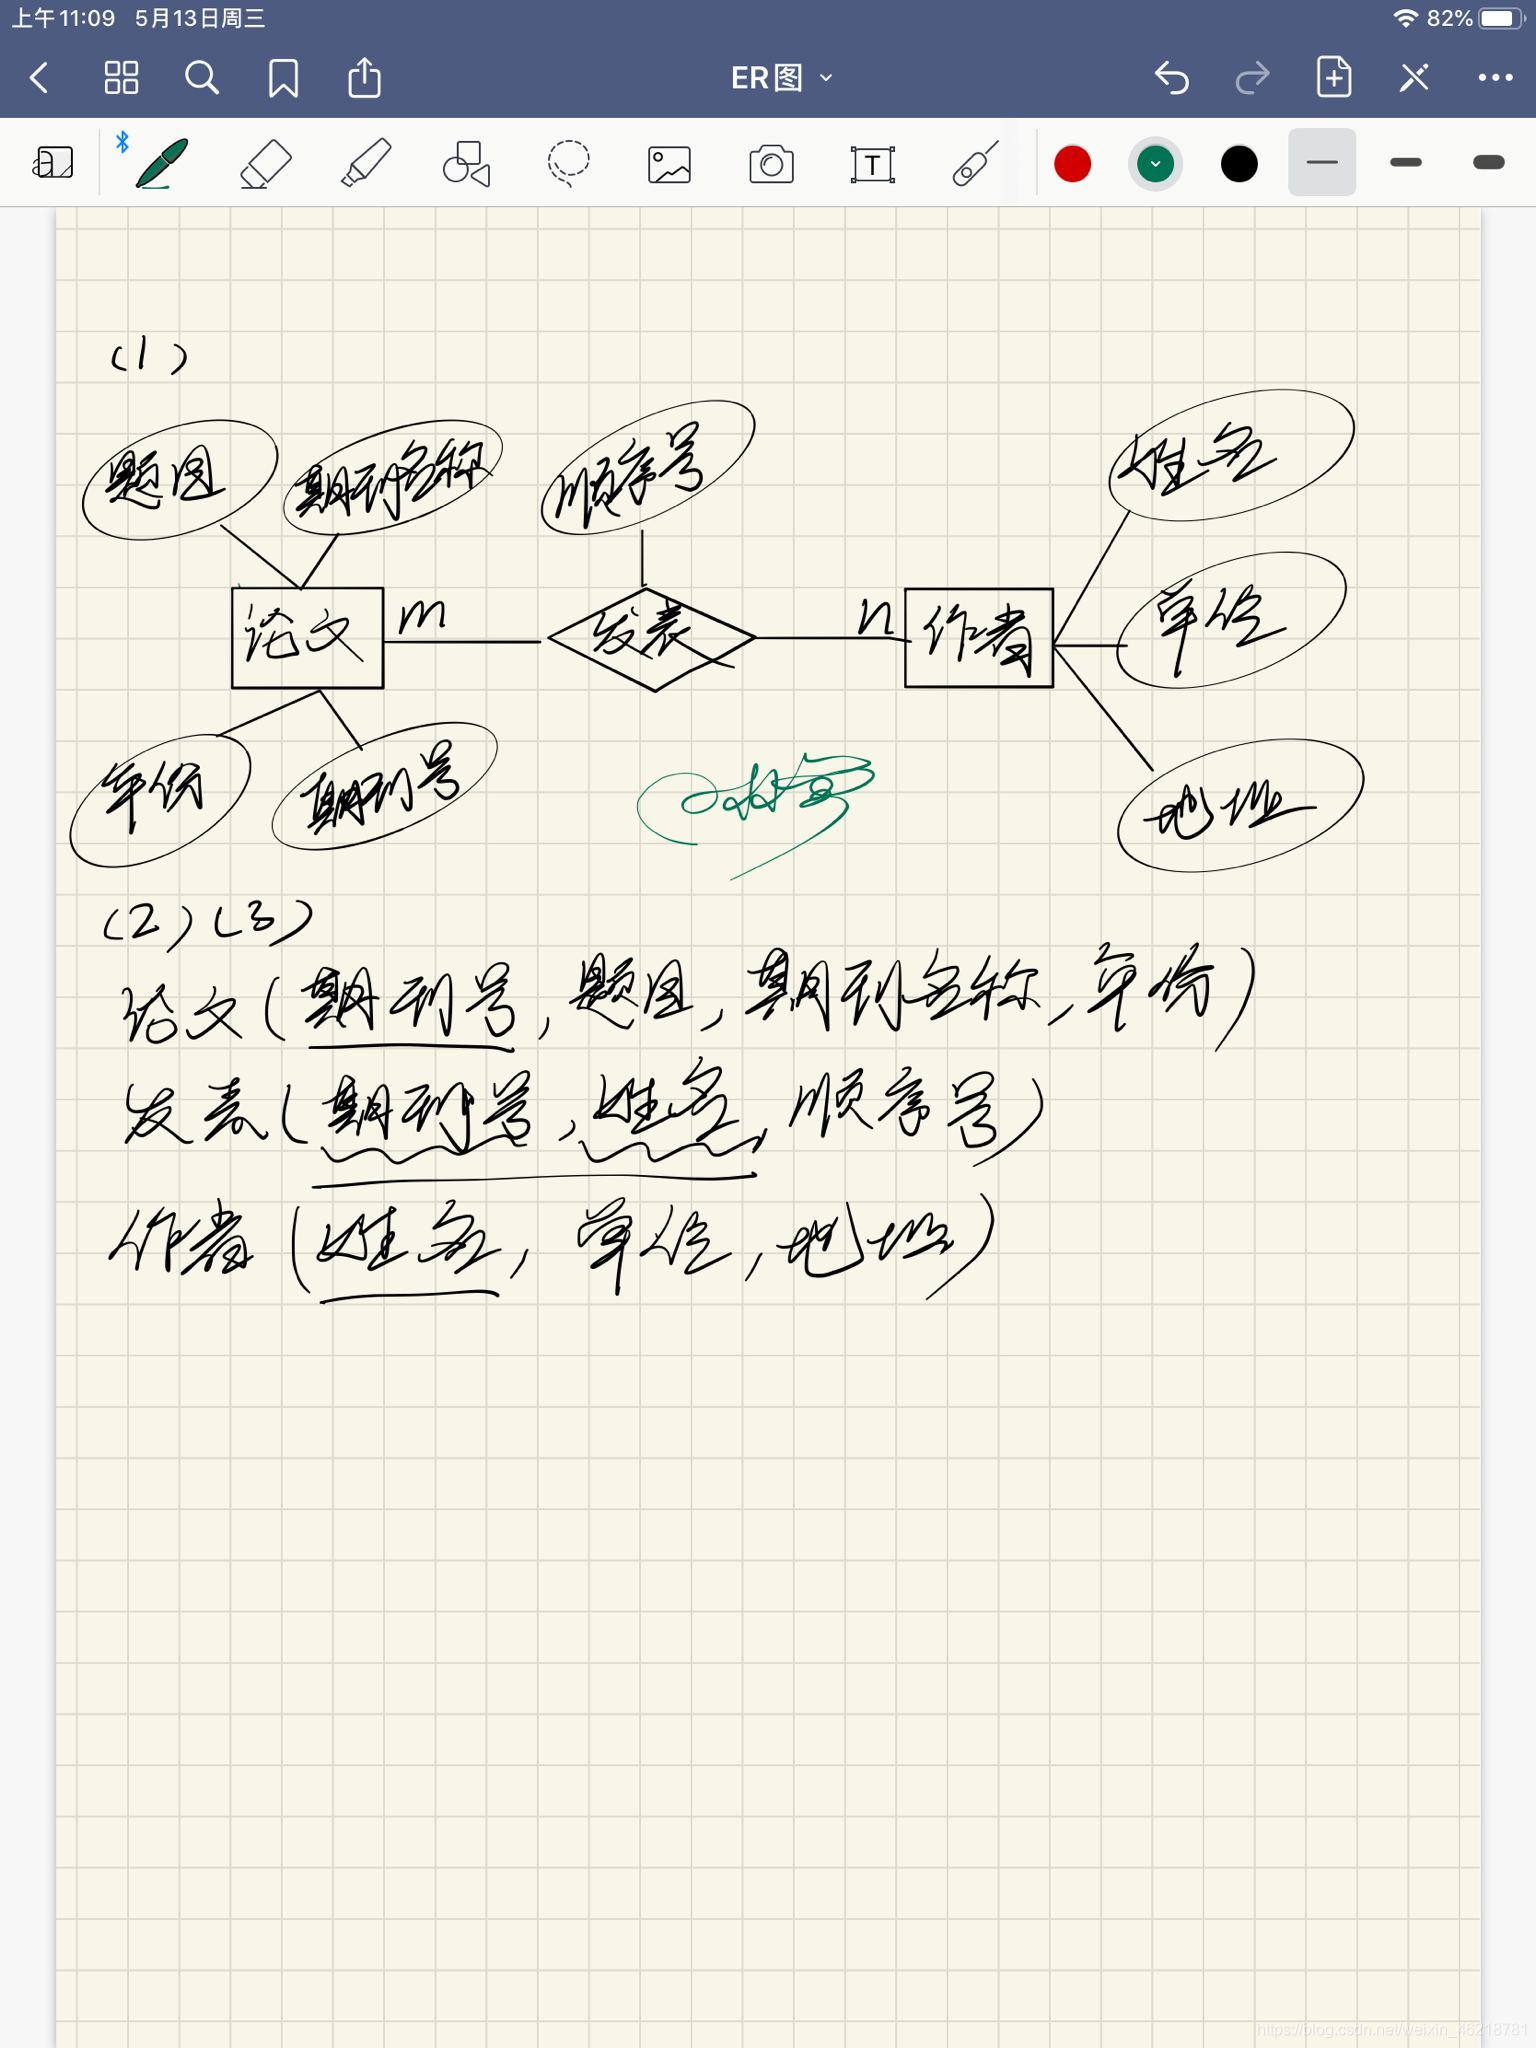 上午11:09 5月13日周三 82%
ER图
T
(1)
题图 期刊名称 顺序号 姓名
单位
论文 m 发表 n 作者
年份 期刊号 地址
(2)(3)
论文(期刊号,题图,期刊名称,年份)
发表(期刊号,姓名,顺序号)
作者(姓名,单位,地址)
https://blog.csdn.net/weixin_46218781